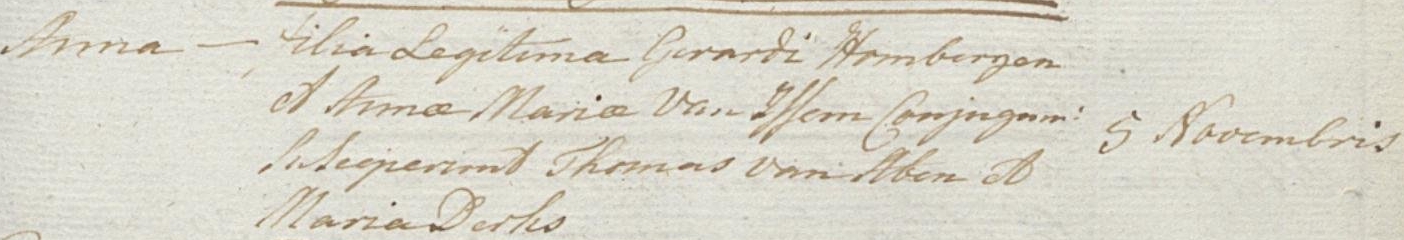 Anna — filia Legitima Gerardi Hombergen
et Annæ Mariæ Van Issem Conjugum:
Susceperunt Thomas van Aben et
Maria Derks
5 Novembris